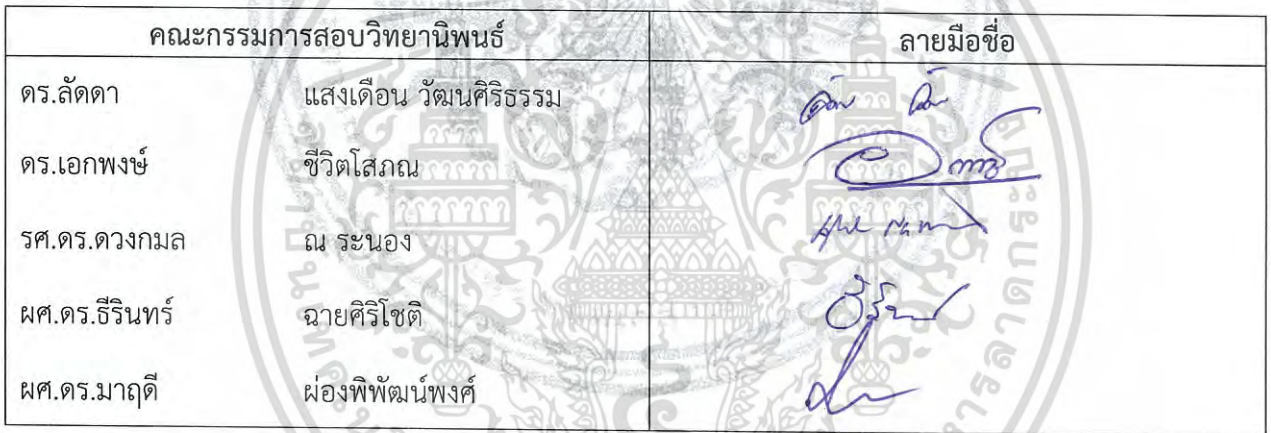 คณะกรรมการสอบวิทยานิพนธ์ ลายมือชื่อ
ดร.ลัดดา แสงเดือน วัฒนศิริธรรม
ดร.เอกพงษ์ ชีวิตโสภณ
รศ.ดร.ดวงกมล ณ ระนอง
ผศ.ดร.ธีรินทร์ ฉายศิริโชติ
ผศ.ดร.มาฤดี ผ่องพิพัฒน์พงศ์